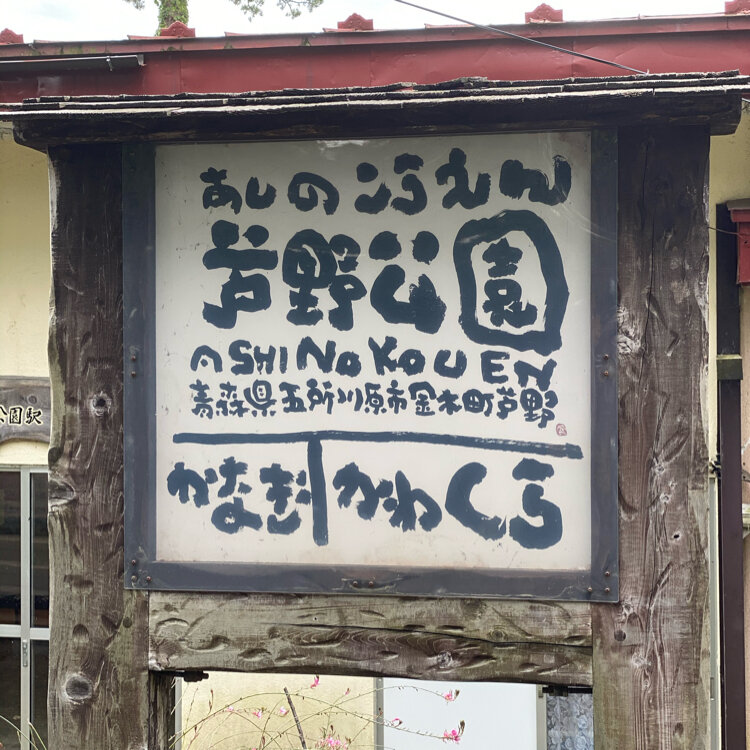 あしのこうえん
芦野公園
ASHINOKOUEN
青森県五所川原市金木町芦野
かなぎ かわくら
公園駅